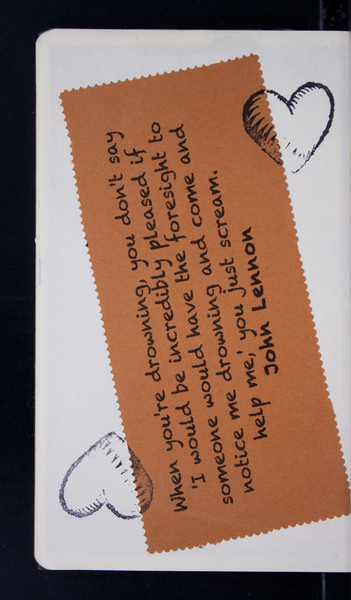 When you're drowning, you don't say
'I would be incredibly pleased if
someone would have the foresight to
notice me drowning and come and
help me,' you just scream.
John Lennon